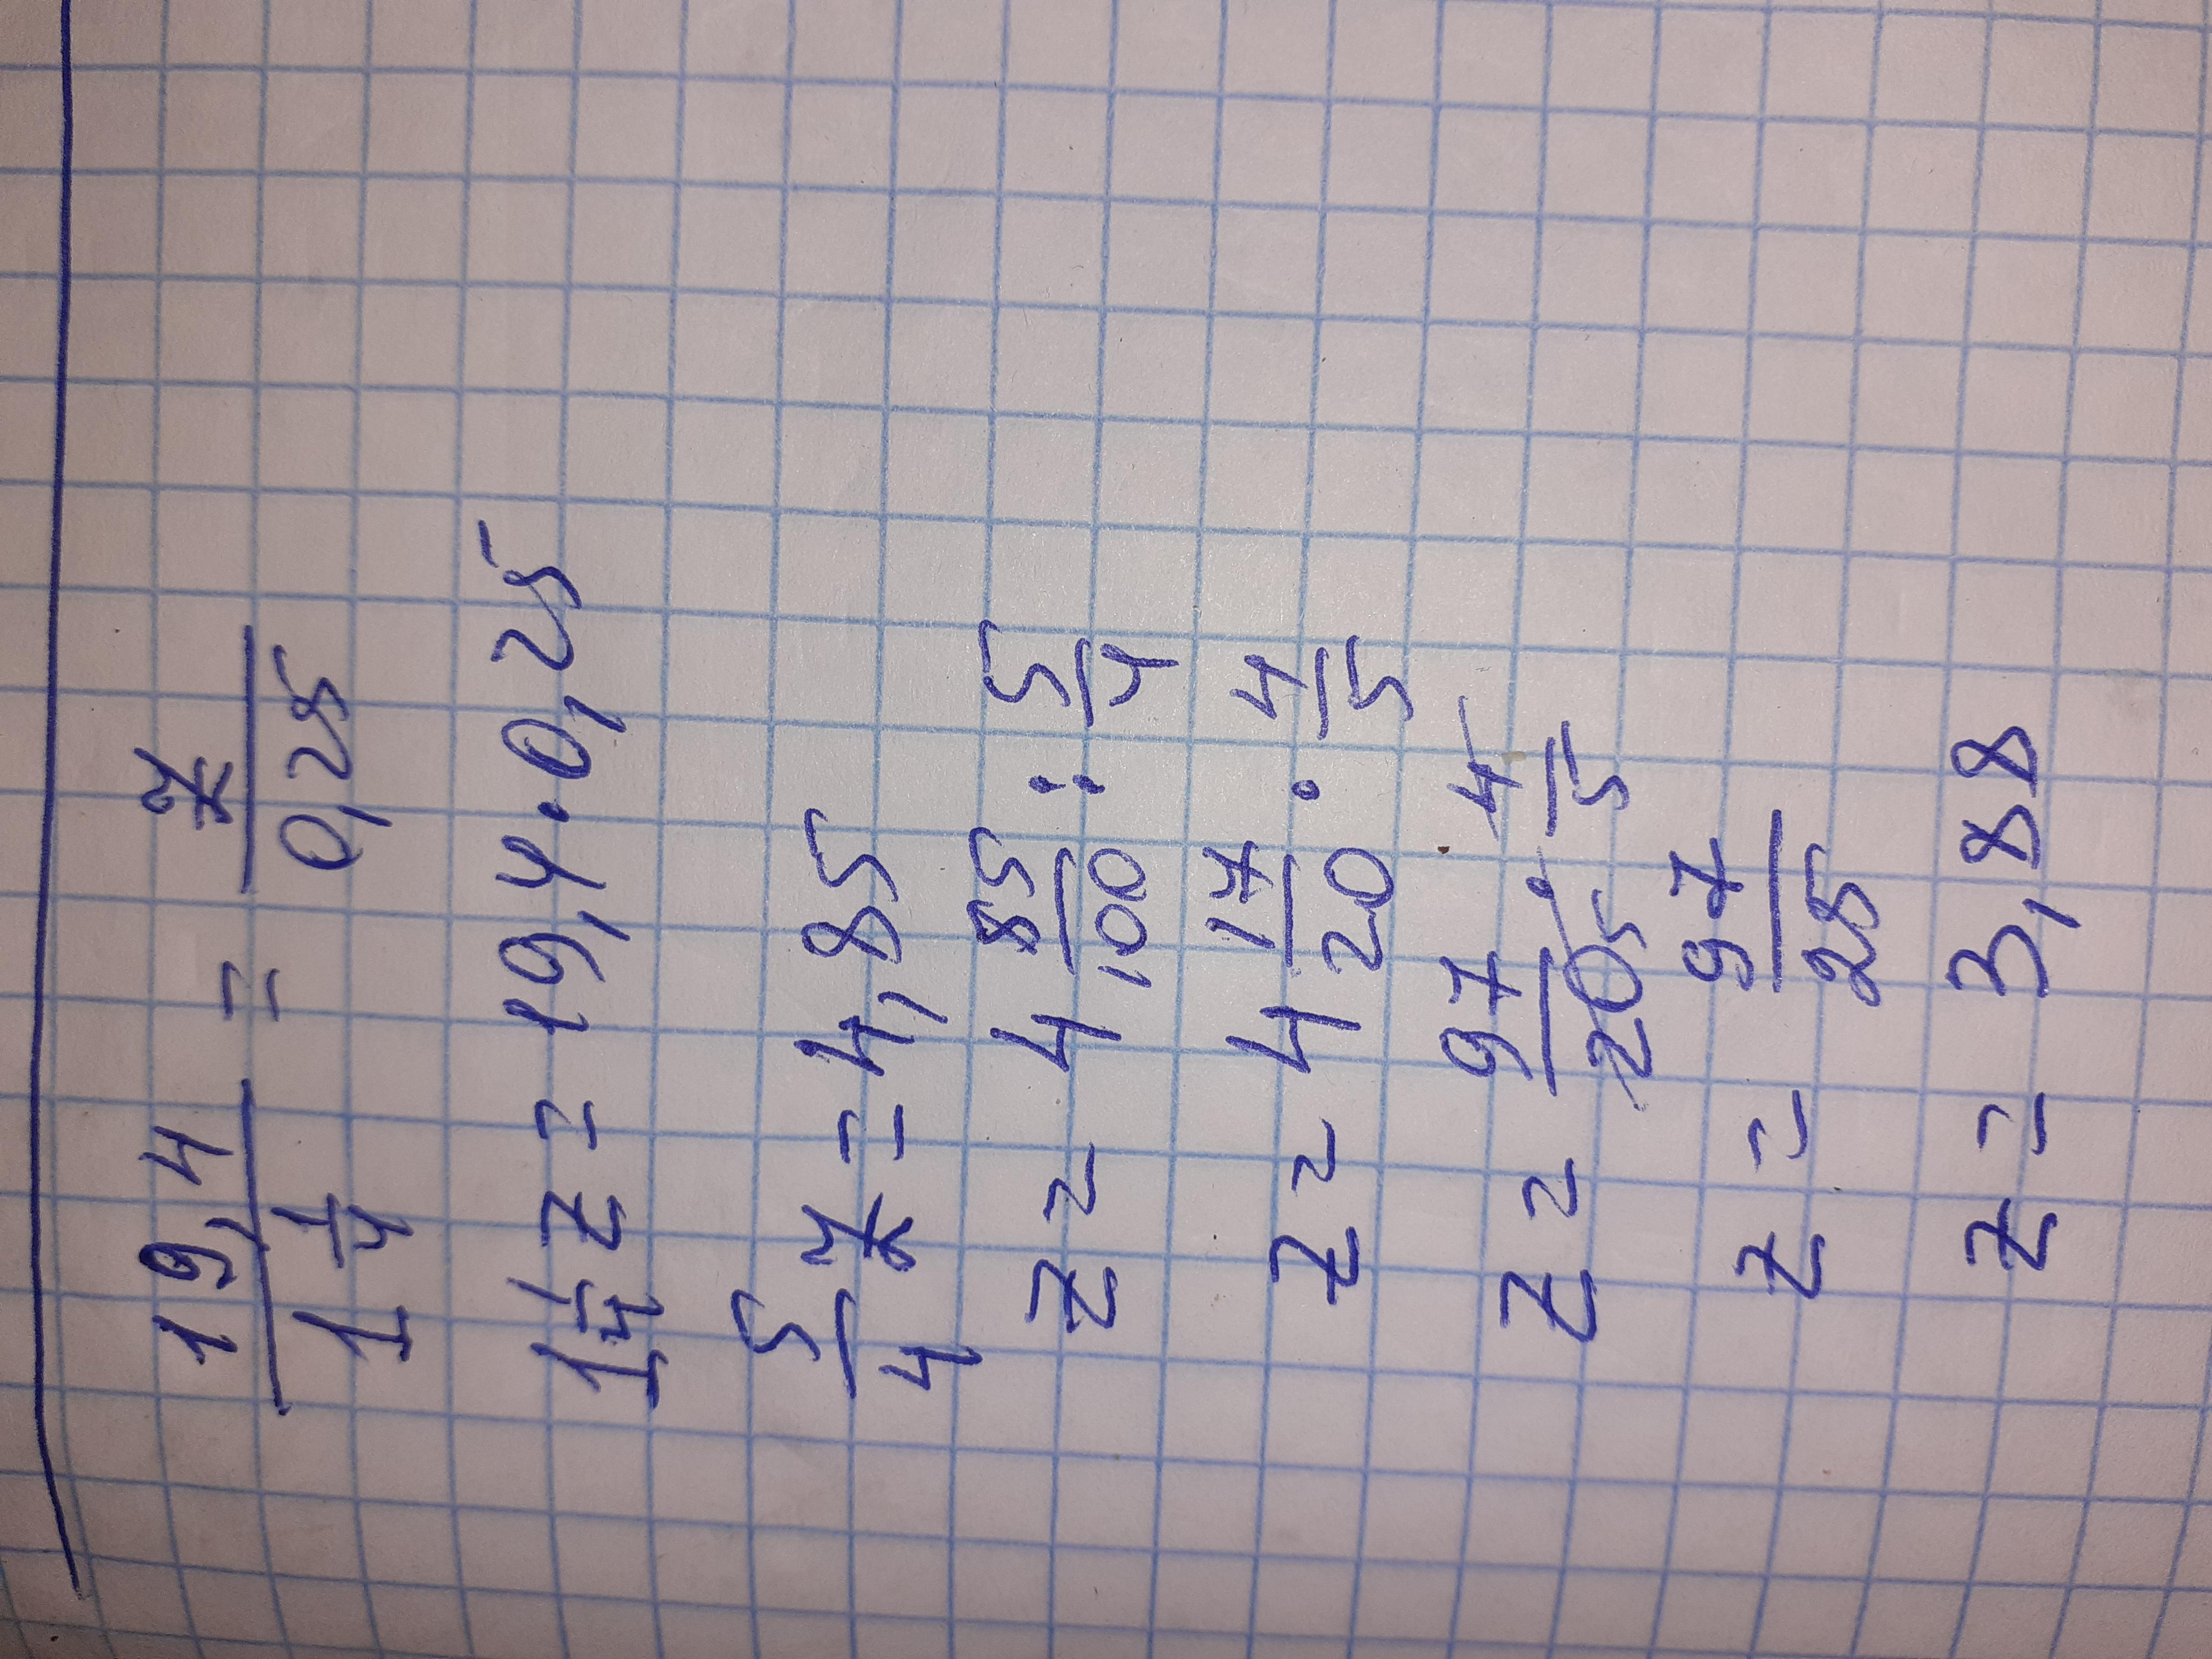 19,4/1 1/4 = z/0,25
1 1/4 z = 19,4 · 0,25
5/4 z = 4,85
z = 4 85/100 : 5/4
z = 4 17/20 · 4/5
z = 97/20 5 · 4/5
z = 97/25
z = 3,88